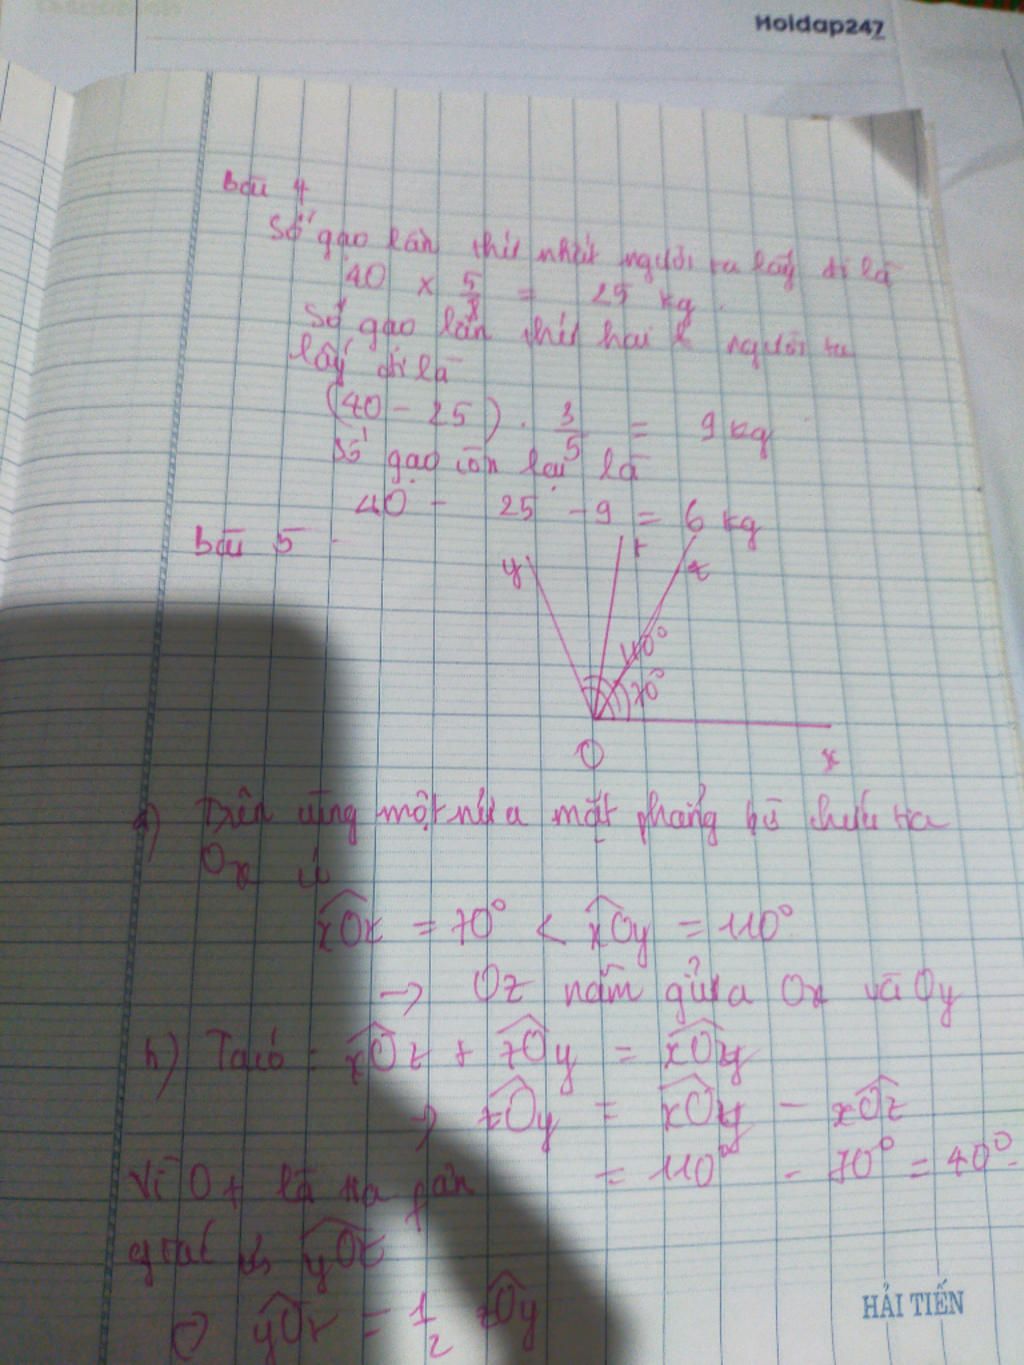 Holdap247
Bài 4
Số gạo lần thứ nhất người ta lấy đi là
40 x 5/8 = 25 kg.
Số gạo lần thứ hai người ta
lấy đi là
(40 - 25) . 3/5 = 9 kg
Số gạo còn lại là
40 - 25 - 9 = 6 kg
Bài 5
y t z
40°
70°
O x
a) Trên cùng một nửa mặt phẳng bờ chứa tia
Ox có
xOz = 70° < xOy = 110°
→ Oz nằm giữa Ox và Oy
b) Ta có : xOz + zOy = xOy
→ zOy = xOy - xOz
= 110° - 70° = 40°
Vì Ot là tia phân
giác yOz
yOt = 1/2 zOy
HẢI TIẾN